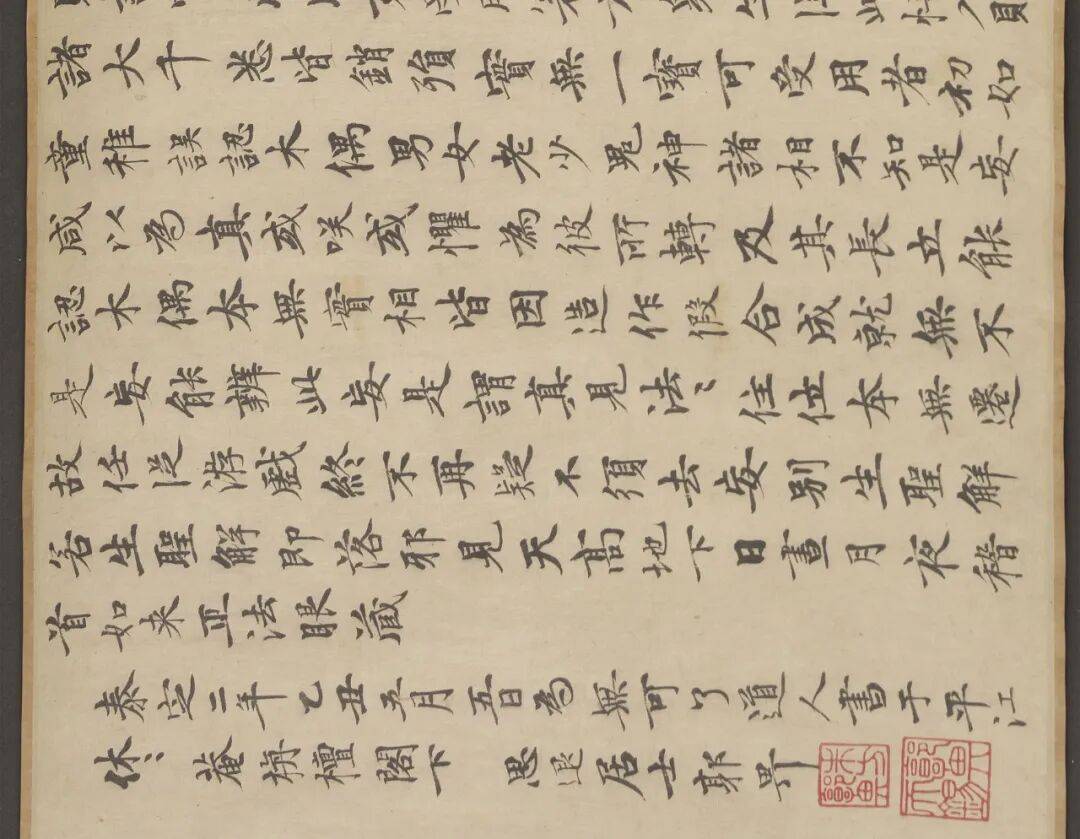 諸大千悉皆銷殞實無一寶可受用者初如
童稚誤認木偶男女老少鬼神諸相不知是妄
咸以為真或咲或懼為彼所轉及其長立能
認木偶本無實相皆因造作假合成就無不
是妄能辨此妄是謂真見法〻住位本無遷
故任從游戲終不再疑不須去妄別生聖解
若生聖解即落邪見天高地下日晝月夜稽
首如来正法眼藏
泰定二年乙丑五月五日為無可了道人書于平江
休〻菴栴檀閣下 思退居士郭畀